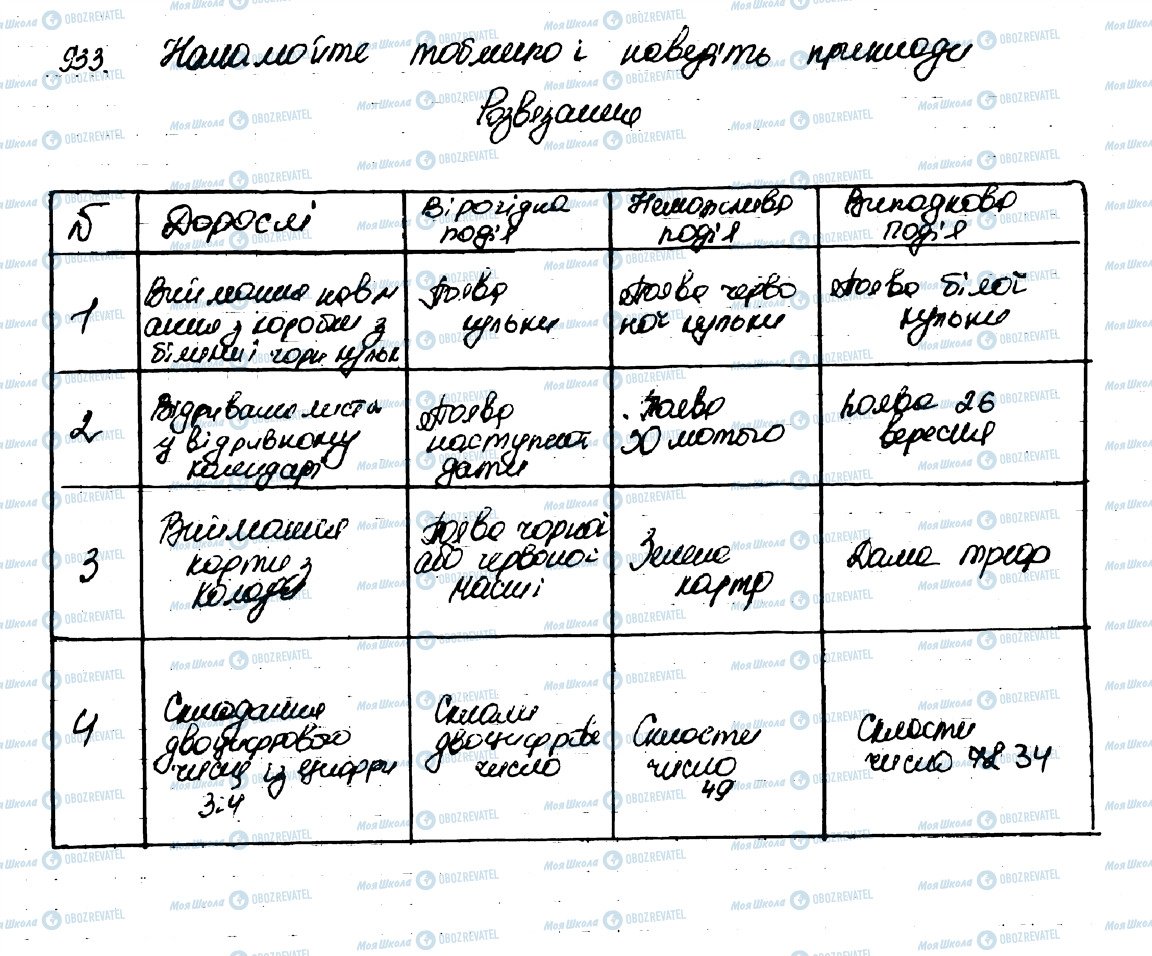 933. Намалюйте таблицю і наведіть приклади
Розвязання
№
Дорослі
Вірогідна
подія
Неможлива
подія
Випадкова
подія
1
Виймання навм
ання з коробки з
білими і чорн кульк
Поява
кульки
Поява черво
ної кульки
Поява білої
кульки
2
Відривання листа
у відривному
календарі
Поява
наступної
дати
Поява
30 лютого
Поява 26
вересня
3
Виймання
карти з
колоди
Поява чорної
або червоної
масті
Зелена
карта
Дама треф
4
Складання
двоцифрового
числа із цифри
3 і 4
Склали
двоцифрове
число
Скласти
число
49
Скласти
число 34